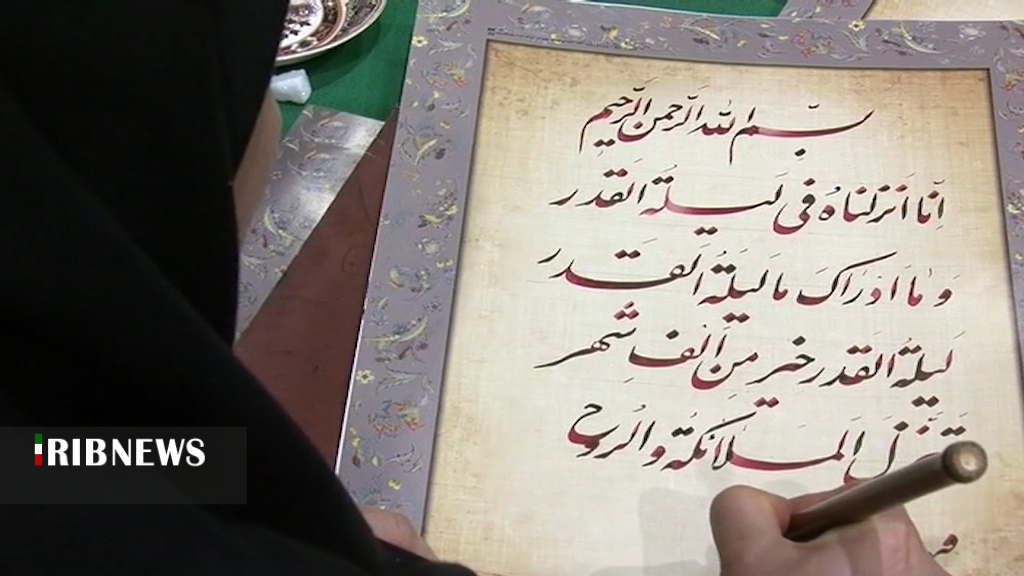 بسم الله الرحمن الرحیم
اِنّا اَنزلناهُ فی لَیلةِ القَدر
وَ ما اَدراکَ ما لیلةُ القَدر
لَیلةُ القَدرِ خیر مِن اَلفِ شَهر
تَنَزَّلُ المَلائکةُ و الرُوح
IRIBNEWS